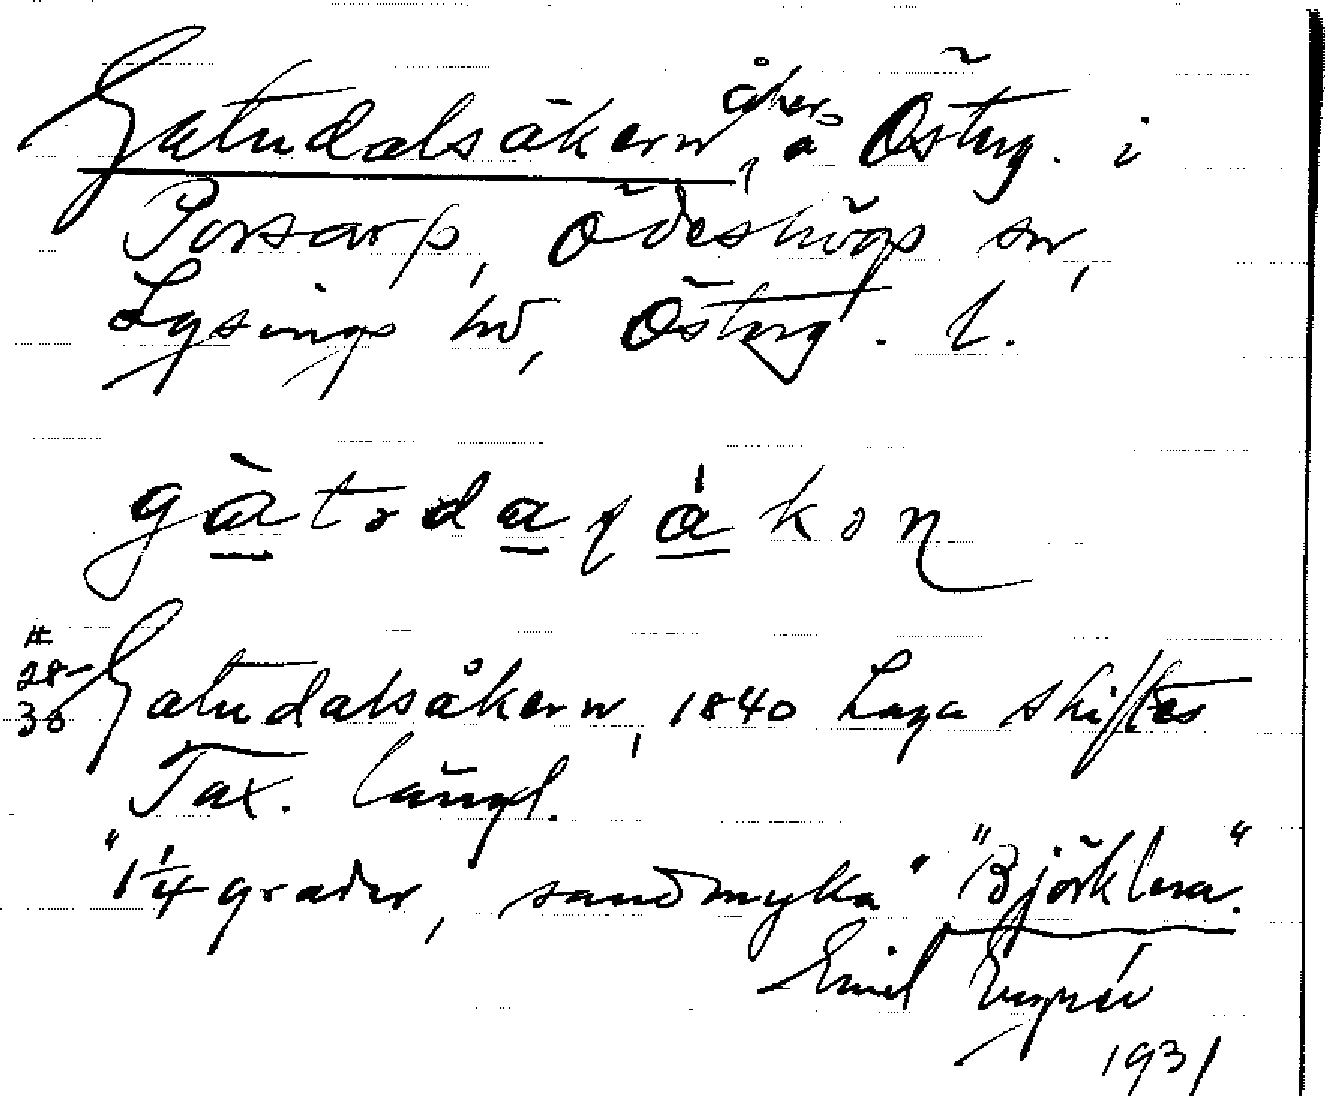 Gatudalsåkern, åker å Österg. i
Porsarp, Ödeshögs sn,
Lysings hd, Österg. l.
gàtodaɼákon
Gatudalsåkern, 1840 Laga skiftes
28-
30
Tax. längd.
"1 1/4 grader, sandmylla" "Björklera".
Emil
1931